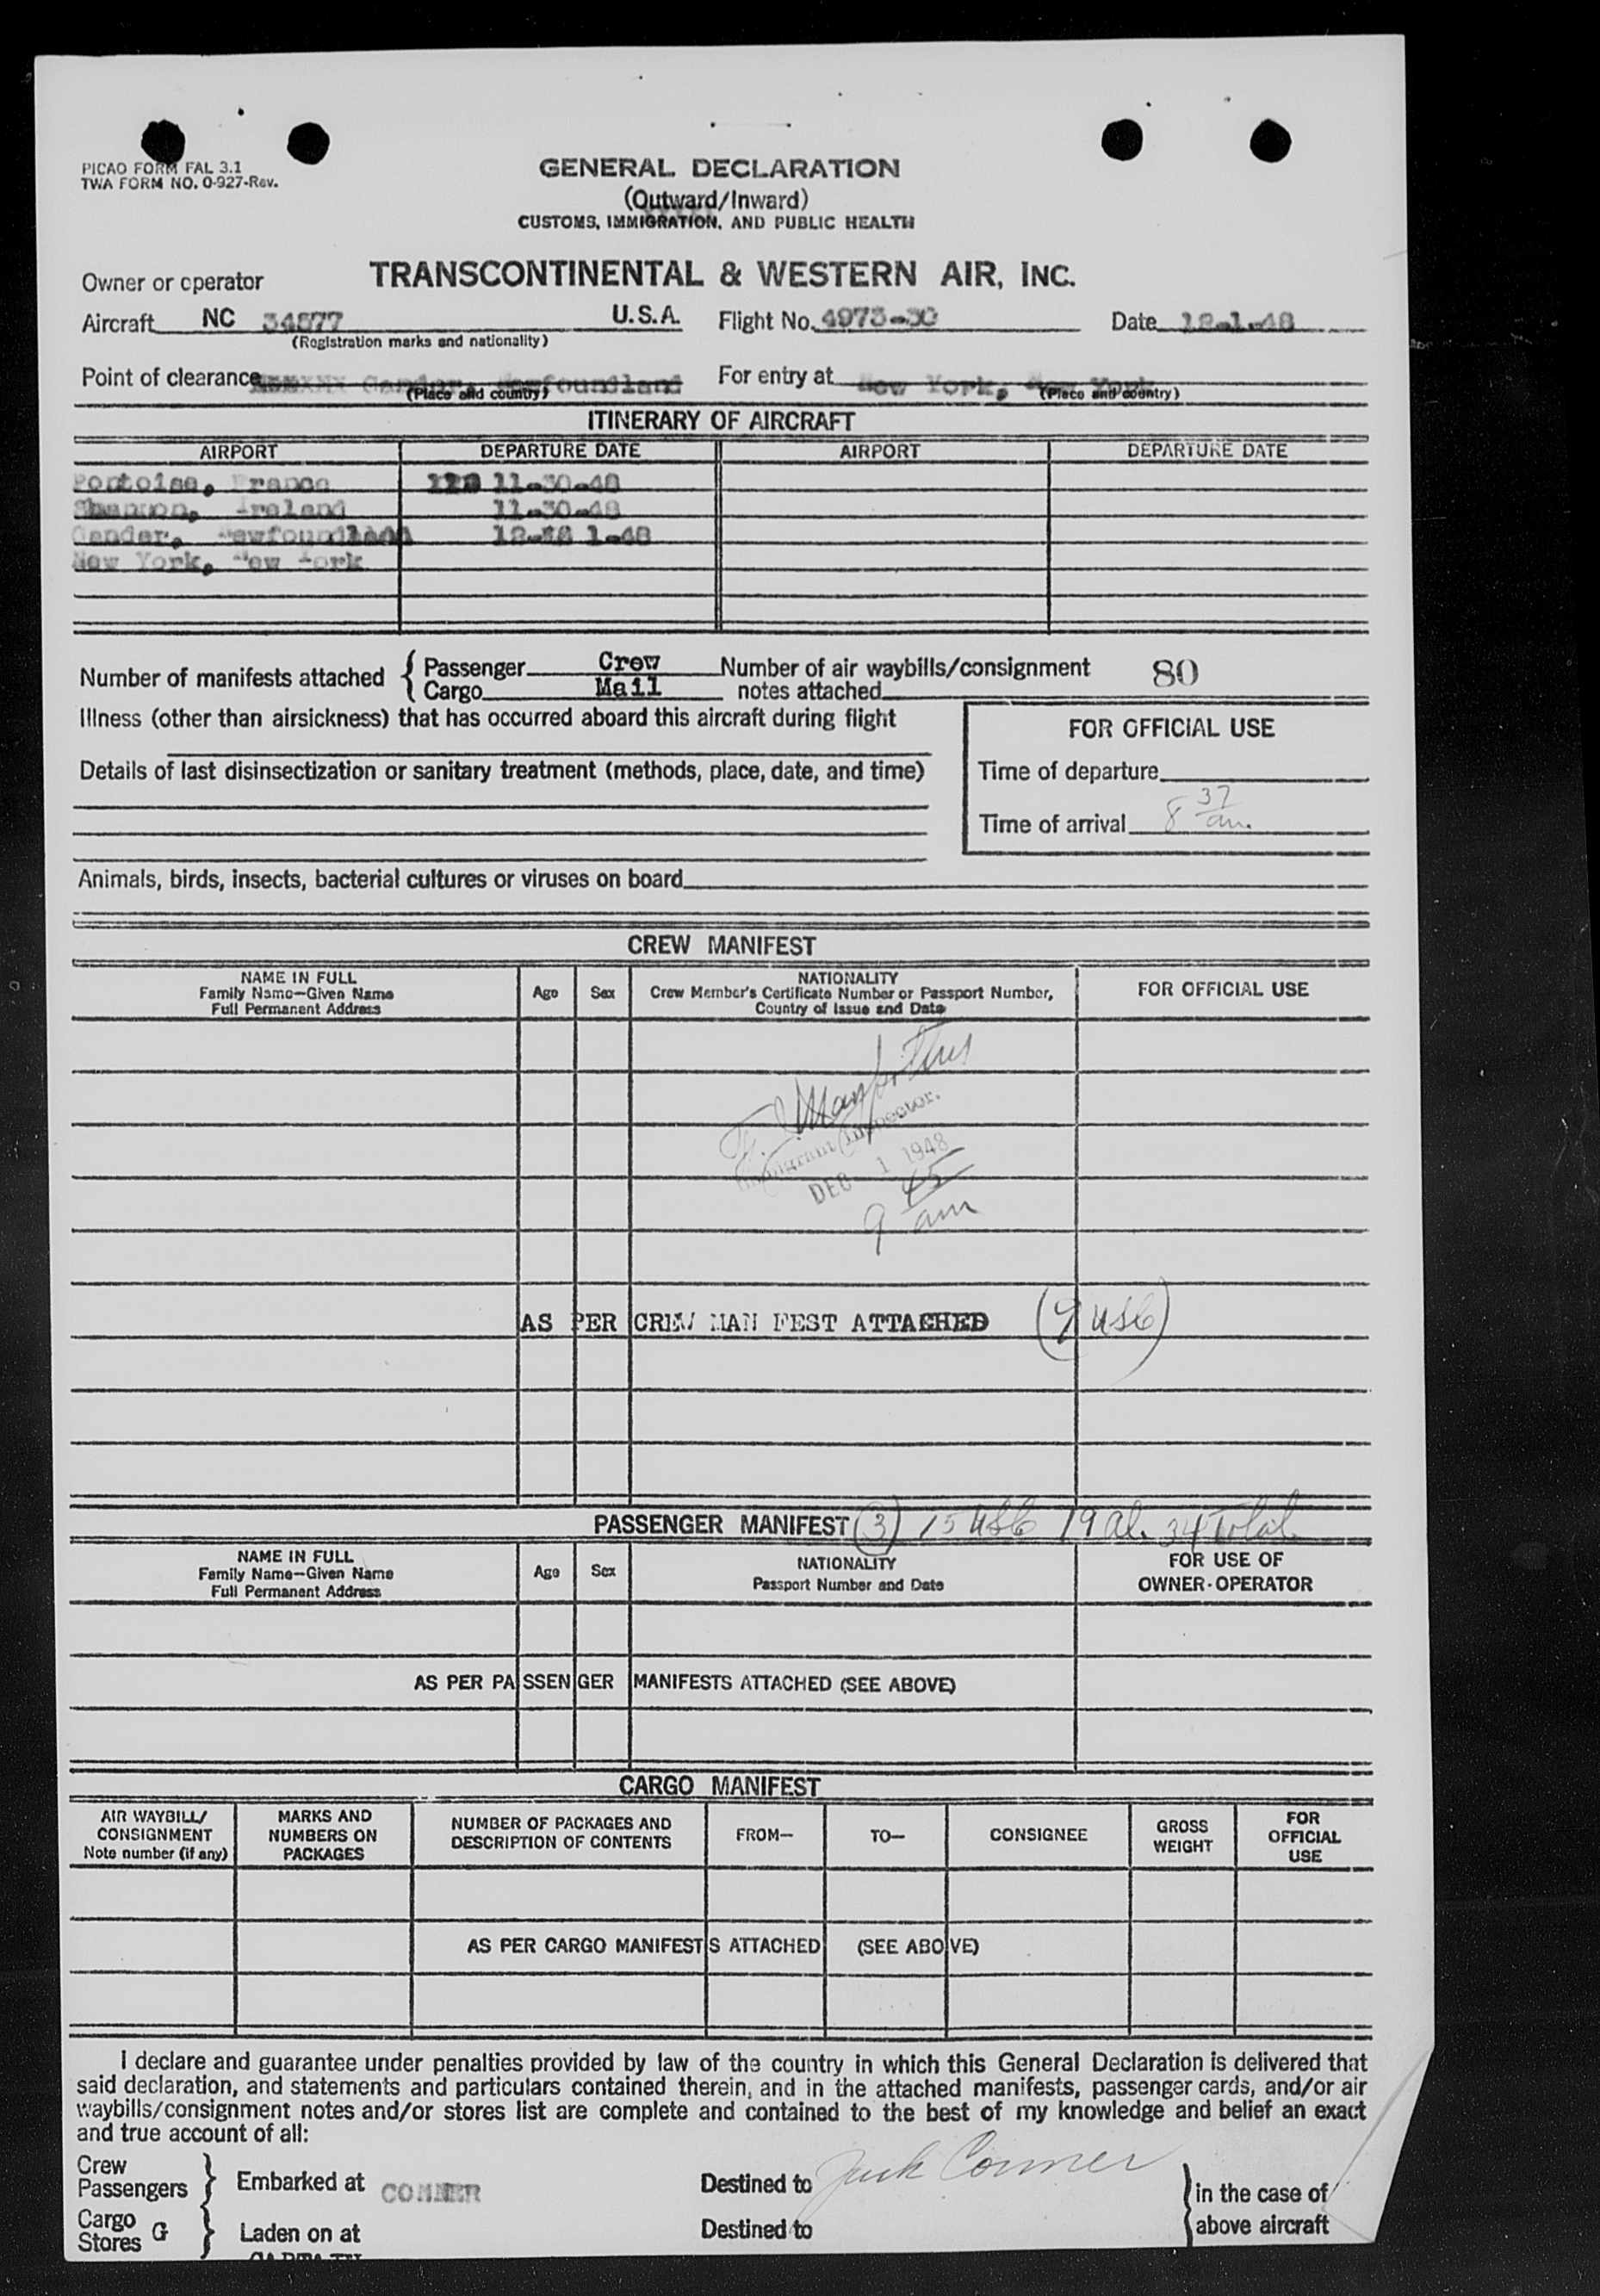 PICAO FORM FAL 3.1
TWA FORM NO. O-927-Rev.
GENERAL DECLARATION
(Outward/Inward)
CUSTOMS, IMMIGRATION, AND PUBLIC HEALTH
Owner or operator TRANSCONTINENTAL & WESTERN AIR, INC.
Aircraft NC 34577 U.S.A. Flight No. 4973-30 Date 12-1-48
(Registration marks and nationality)
Point of clearance Gander, Newfoundland For entry at New York, New York
(Place and country) (Place and country)
ITINERARY OF AIRCRAFT
AIRPORT DEPARTURE DATE AIRPORT DEPARTURE DATE
Pontoise, France 11-30-48
Shannon, Ireland 11-30-48
Gander, Newfoundland 12- 1-48
New York, New York
Number of manifests attached { Passenger Crew Number of air waybills/consignment 80
Cargo Mail notes attached
Illness (other than airsickness) that has occurred aboard this aircraft during flight
FOR OFFICIAL USE
Details of last disinsectization or sanitary treatment (methods, place, date, and time)
Time of departure
Time of arrival 8 37 am.
Animals, birds, insects, bacterial cultures or viruses on board
CREW MANIFEST
NAME IN FULL
Family Name—Given Name
Full Permanent Address
Age Sex
NATIONALITY
Crew Member's Certificate Number or Passport Number,
Country of Issue and Date
FOR OFFICIAL USE
Inspector.
DEC 1 1948
9 45 am
AS PER CREW MAN FEST ATTACHED (9 USC)
PASSENGER MANIFEST (3) 15 USC 19 al. 34 Total
NAME IN FULL
Family Name—Given Name
Full Permanent Address
Age Sex
NATIONALITY
Passport Number and Date
FOR USE OF
OWNER-OPERATOR
AS PER PASSENGER MANIFESTS ATTACHED (SEE ABOVE)
CARGO MANIFEST
AIR WAYBILL/
CONSIGNMENT
Note number (if any)
MARKS AND
NUMBERS ON
PACKAGES
NUMBER OF PACKAGES AND
DESCRIPTION OF CONTENTS
FROM— TO— CONSIGNEE
GROSS
WEIGHT
FOR
OFFICIAL
USE
AS PER CARGO MANIFESTS ATTACHED (SEE ABOVE)
I declare and guarantee under penalties provided by law of the country in which this General Declaration is delivered that
said declaration, and statements and particulars contained therein, and in the attached manifests, passenger cards, and/or air
waybills/consignment notes and/or stores list are complete and contained to the best of my knowledge and belief an exact
and true account of all:
Crew
Passengers } Embarked at CONNER Destined to Jack Conner } in the case of
Cargo
Stores G } Laden on at Destined to above aircraft